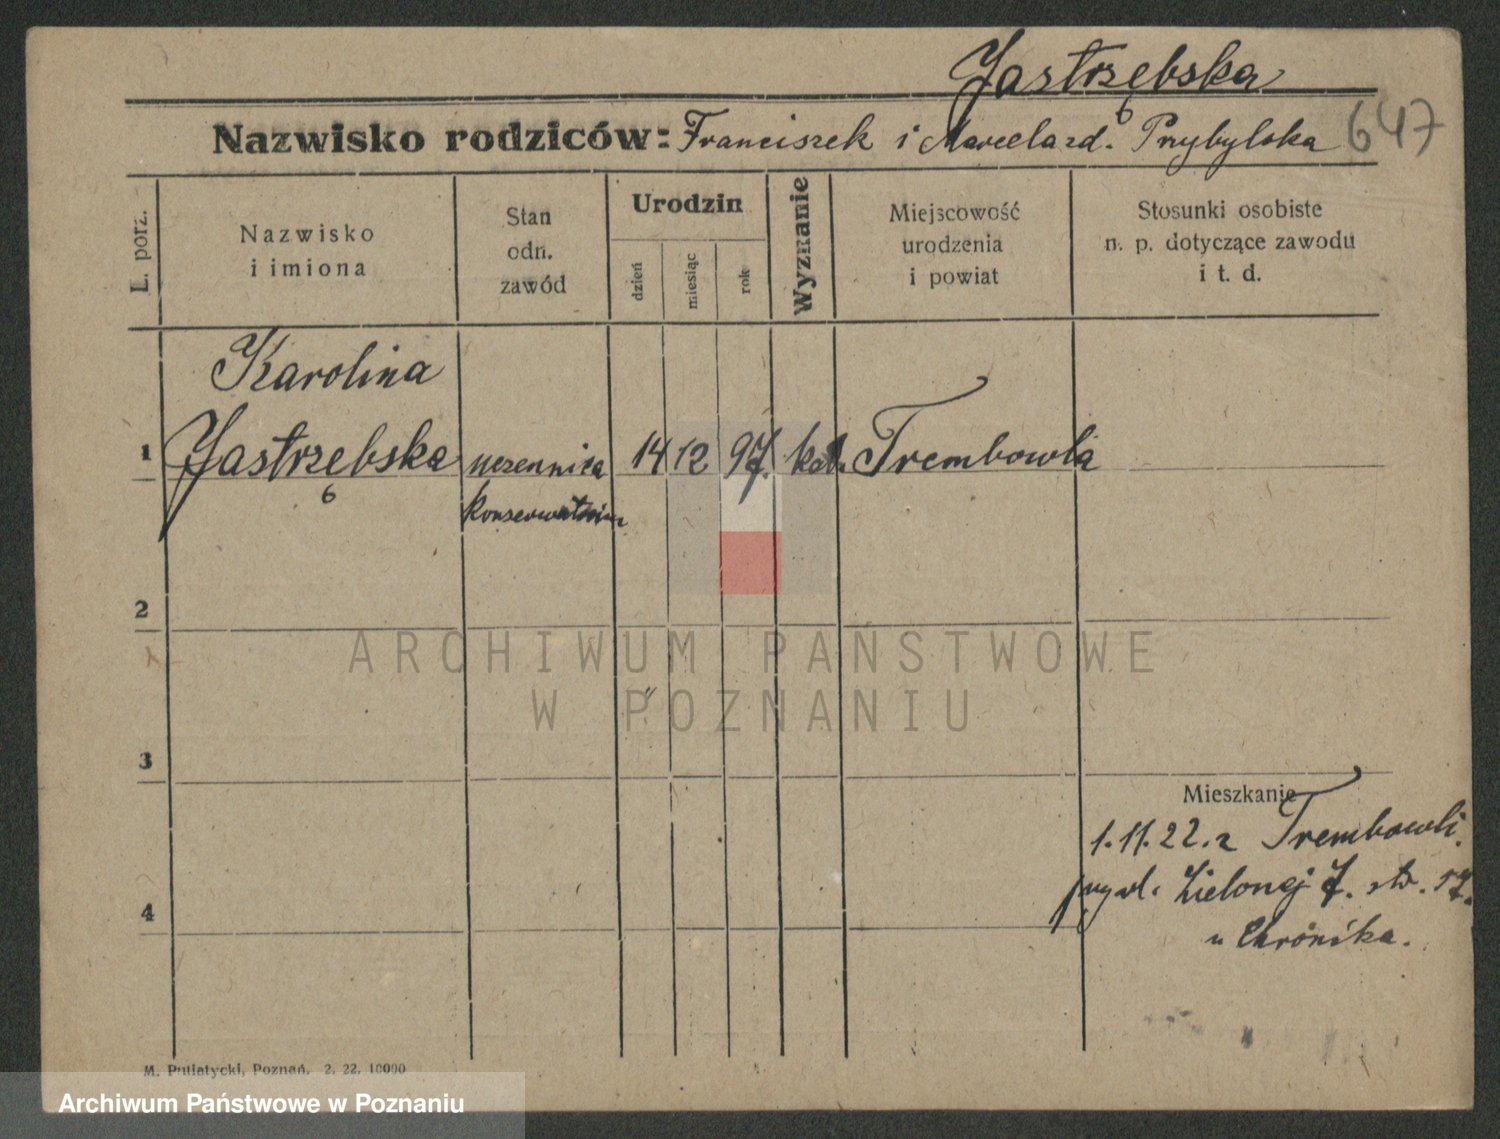 Jastrzębska
Nazwisko rodziców: Franciszek i Marcela zd. Przybylska 647
L. porz.
Nazwisko
i imiona
Stan
odn.
zawód
Urodzin
dzień
miesiąc
rok
Wyznanie
Miejscowość
urodzenia
i powiat
Stosunki osobiste
n. p. dotyczące zawodu
i t. d.
Karolina
1 Jastrzębska uczennica 14 12 97. kat. Trembowla
konserwatorium
2
ARCHIWUM PAŃSTWOWE
W POZNANIU
3
Mieszkanie
1.11.22. z Trembowli.
Zielonej 7. 17.
u Chrónika.
4
M. Putiatycki, Poznań. 2. 22. 10000
Archiwum Państwowe w Poznaniu